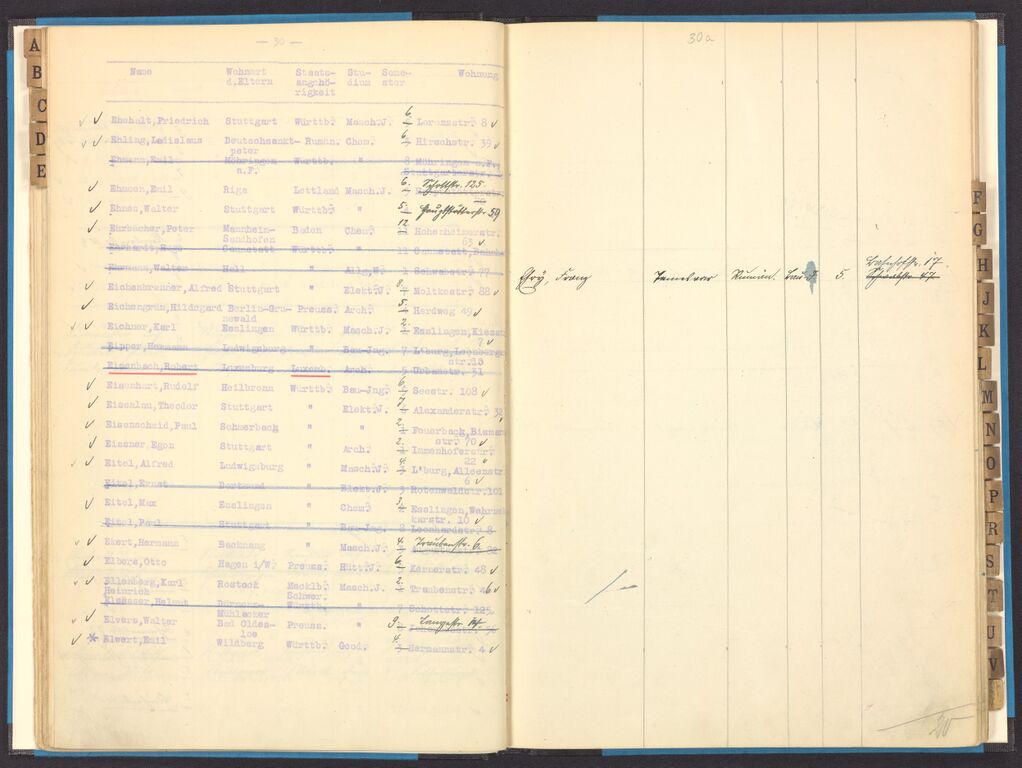 A
B
C
D
E
— 30 —
Name Wohnort d.Eltern Staatsangehörigkeit Studium Semester Wohnung
Ehehalt, Friedrich Stuttgart Württb. Masch.J. 6 Lorenzstr. 8
Ehling, Ladislaus Deutschsankt- Rumän. Chem. 6 Hirschstr. 39
peter
Ehmann, Emil Möhringen Württb. " 8 Möhringen a.F.
a.F. Stuttgarterstr.
Ehmsen, Emil Riga Lettland Masch.J. 6. Schottstr. 125
Ehnes, Walter Stuttgart Württb. " 5. Hauptstätterstr 59
Ehrbächer, Peter Mannheim- Baden Chem. 12 Hohenheimerstr.
Sandhofen 63
Ehrhardt, Hugo Cannstatt Württb. " 12 Cannstatt,
Ehrmann, Walter Hall " Allg.W. 1 Schwabstr. 77
Eichenbrenner, Alfred Stuttgart " Elekt.J. Moltkestr. 88
Eichengrün, Hildegard Berlin-Gru- Preuss. Arch. 5. Herdweg 49
newald
Eichner, Karl Esslingen Württb. Masch.J. 2. Esslingen,
7
Eipper, Hermann Ludwigsburg " Bau-Jng. 7 L'burg,
str.10
Eisenbach, Robert Luxemburg Luxemb. Arch. 5 Urbanstr. 31
Eisenhart, Rudolf Heilbronn Württb. Bau-Jng. 6 Seestr. 108
Eisenlau, Theodor Stuttgart " Elekt.J. 7 Alexanderstr. 32
Eisenschmid, Paul Schnerbach " " 2. Feuerbach,
str. 70
Eissner, Egon Stuttgart " Arch. 2. Immenhoferstr.
22
Eitel, Alfred Ludwigsburg " Masch.J. 4. L'burg, Alleenstr
6
Eitel, Ernst Dortmund " Elekt.J. 3 Rotenwaldstr.101
Eitel, Max Esslingen " Chem. 3. Esslingen,
str. 10
Eitel, Paul Stuttgart " Bau-Jng. 2 Leonhardstr. 8
Ekert, Hermann Backnang " Masch.J. 4. Traubenstr. 6.
Elbers, Otto Hagen i/W. Preuss. Hütt.J. 6. Kernerstr. 48
Ellenberg, Karl Rostock Mecklb. Masch.J. 2. Traubenstr. 46
Heinrich Schwer.
Elsässer, Helmut Dürrmenz- Württb. " 7 Schottstr. 125
Mühlacker
Elvers, Walter Bad Oldes- Preuss. " 9 Langestr. 14.
loe
Elwert, Emil Wildberg Württb. Geod. 4. Hermannstr. 4
30a
Bahnhofstr. 17.
Franz Temeswar Rumän. 5. Schwabstr. 47
20
F
G
H
J
K
L
M
N
O
P
R
S
T
U
V